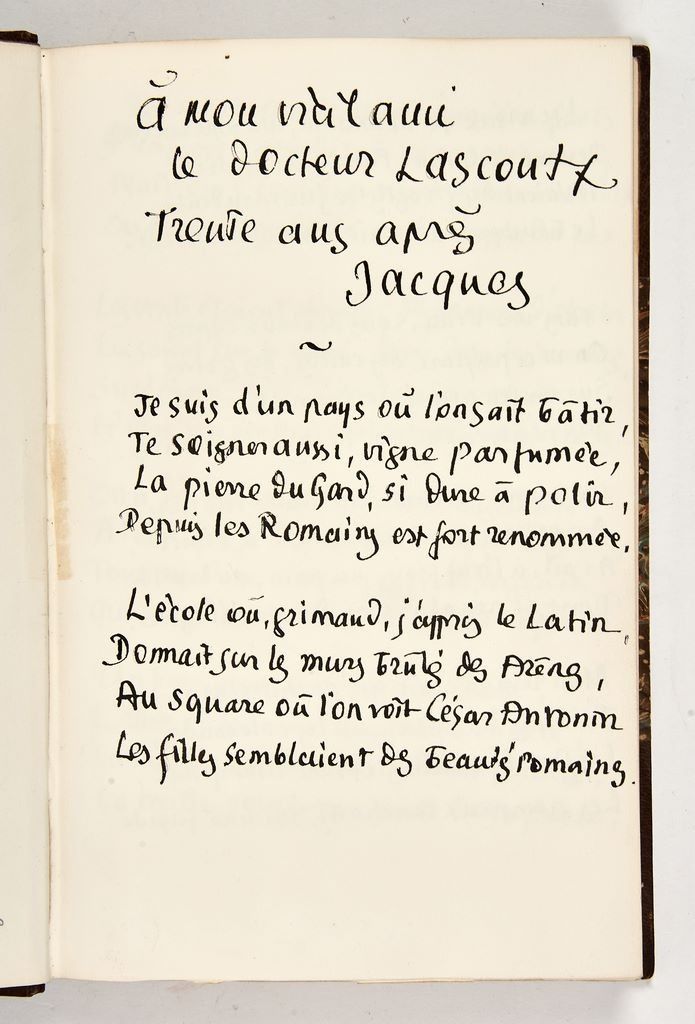 à mon vieil ami
le docteur Lascoutx
Trente ans après
Jacques
~
Je suis d'un pays où l'on sait bâtir,
Te soigner aussi, vigne parfumée,
La pierre du Gard, si dure à polir,
Depuis les Romains est fort renommée.
L'école où, grimaud, j'appris le Latin,
Donnait sur les murs brûlés des Arènes,
Au square où l'on voit César Antonin
Les filles semblaient des beautés romaines.